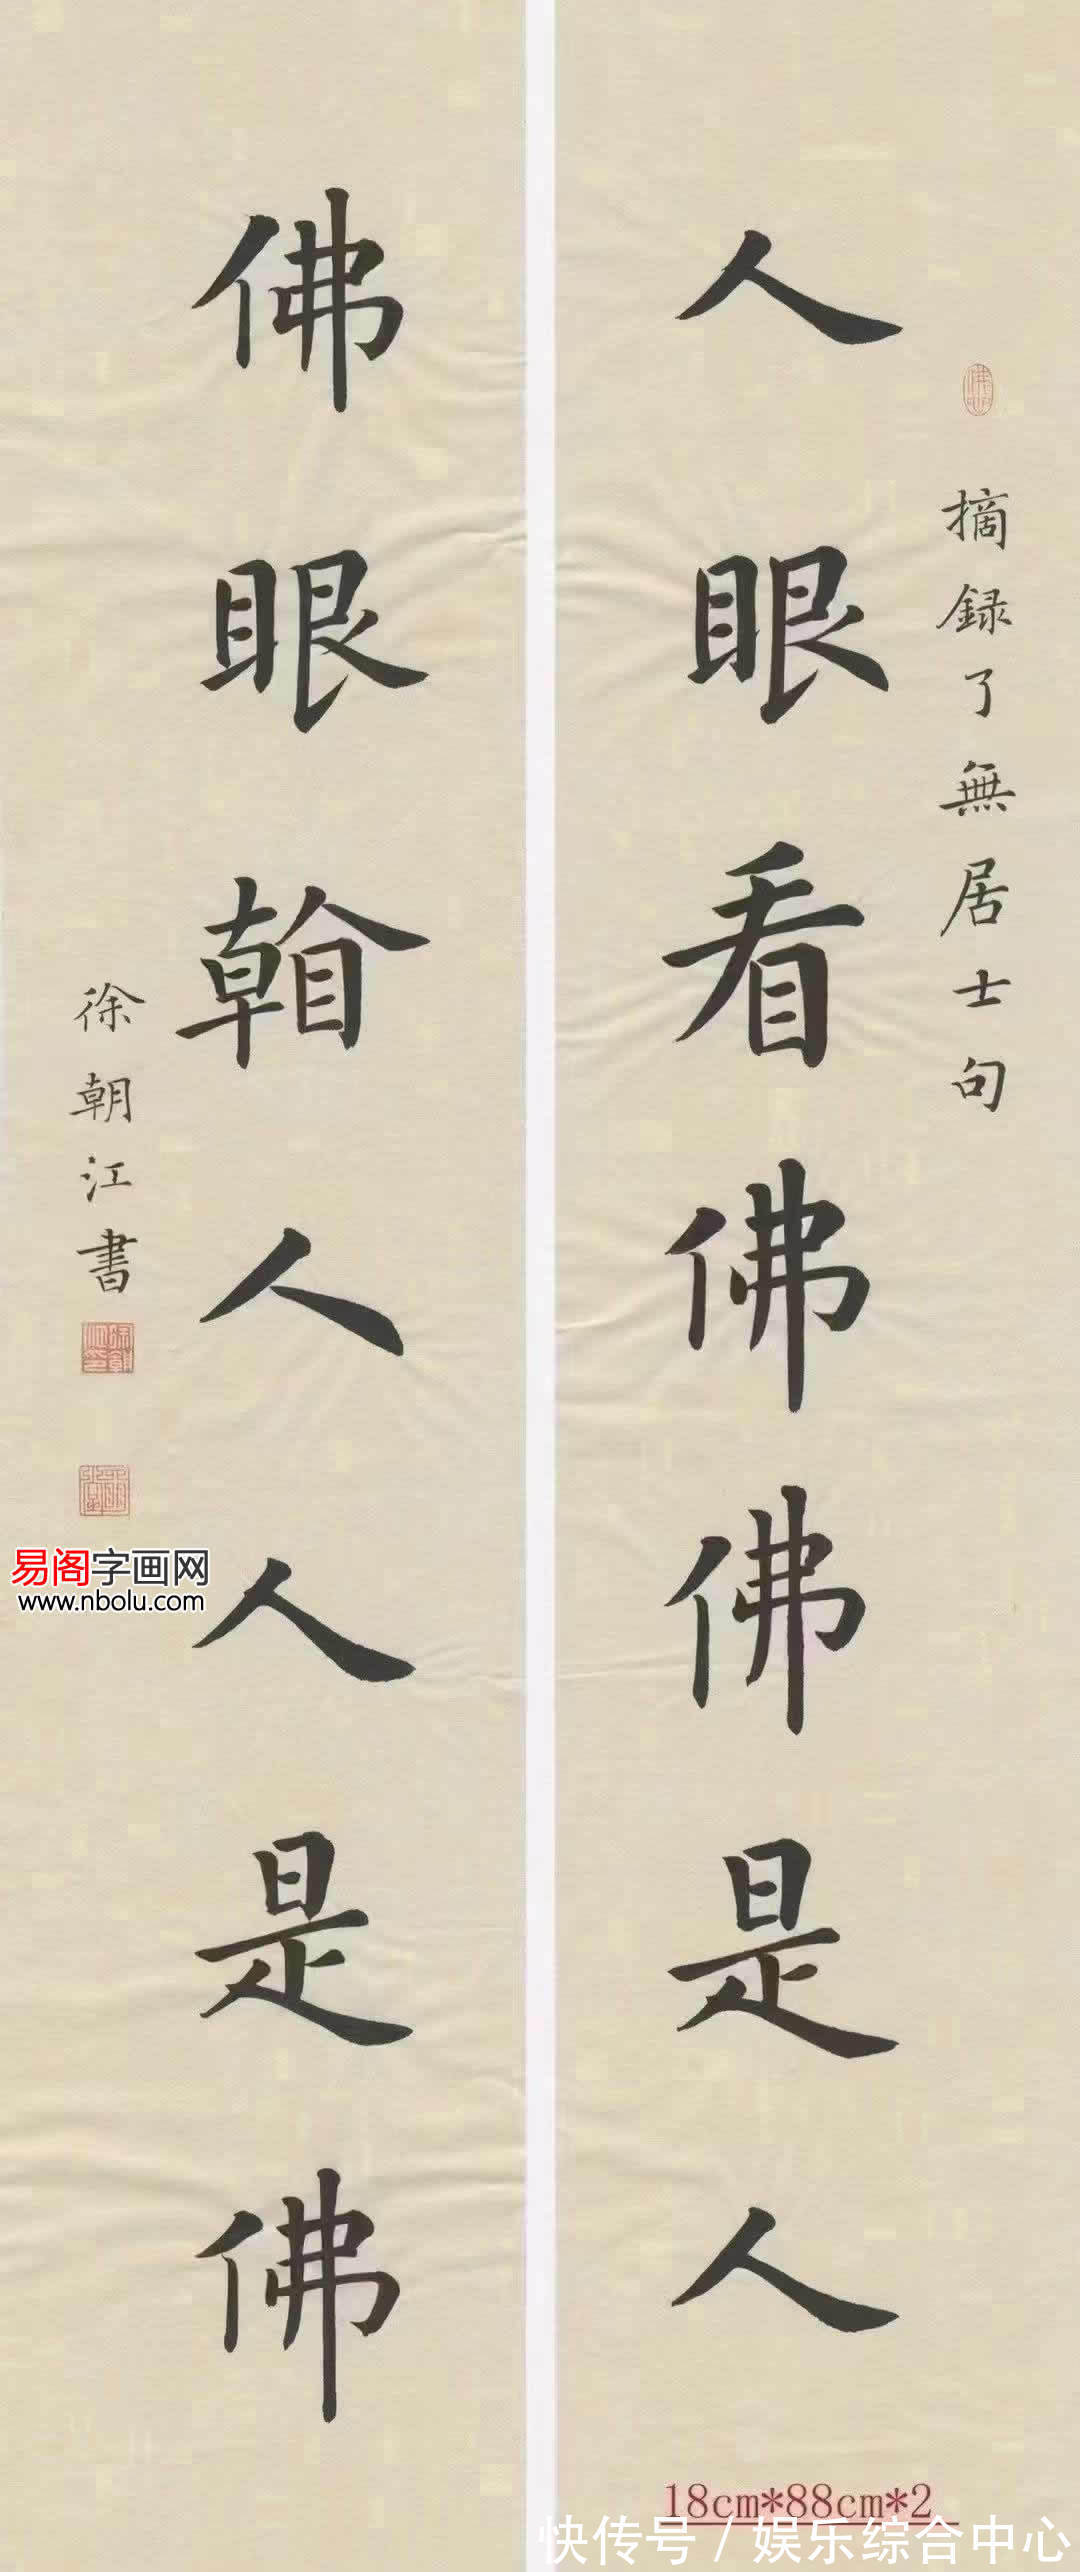 摘録了無居士句
人眼看佛佛是人
佛眼人人是佛
徐朝江書
易阁字画网
www.nbolu.com
18cm*88cm*2
快传号 / 娱乐综合中心